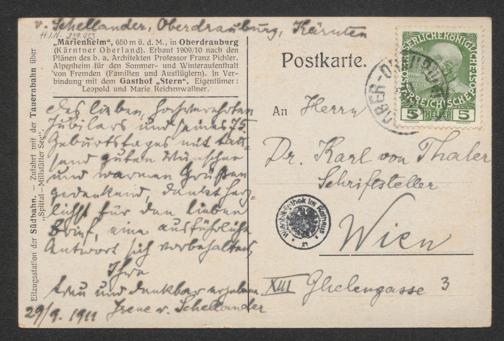 v. Schellander, Oberdrauburg, Kärnten
H.I.N.-239.253
„Marienheim“, 650 m ü. d. M., in Oberdrauburg
(Kärntner Oberland). Erbaut 1909/10 nach den
Plänen des b. a. Architekten Professor Franz Pichler.
Alpenheim für den Sommer- und Winteraufenthalt
von Fremden (Familien und Ausflüglern). In Ver-
bindung mit dem Gasthof „Stern“. Eigentümer:
Leopold und Marie Reichenwallner.
Eilzugsstation der Südbahn. Zufahrt mit der Tauernbahn über
„Spittal-Millstätter See“.
Des lieben, hochverehrten
Jubilars und seines 75.
Geburtstages mit
und guten Wünschen
und warmen Grüßen
gedenkend, dankt herz-
lichst für den lieben
Brief, eine ausführliche
Antwort sich vorbehaltend
Ihre
treu und dankbar ergebene
Irene v. Schellander
29/9. 1911
Postkarte.
5 5
OBER-DRAUBURG
An Herrn
Dr. Karl von Thaler
Schriftsteller
Wien
XIII Ghelengasse 3